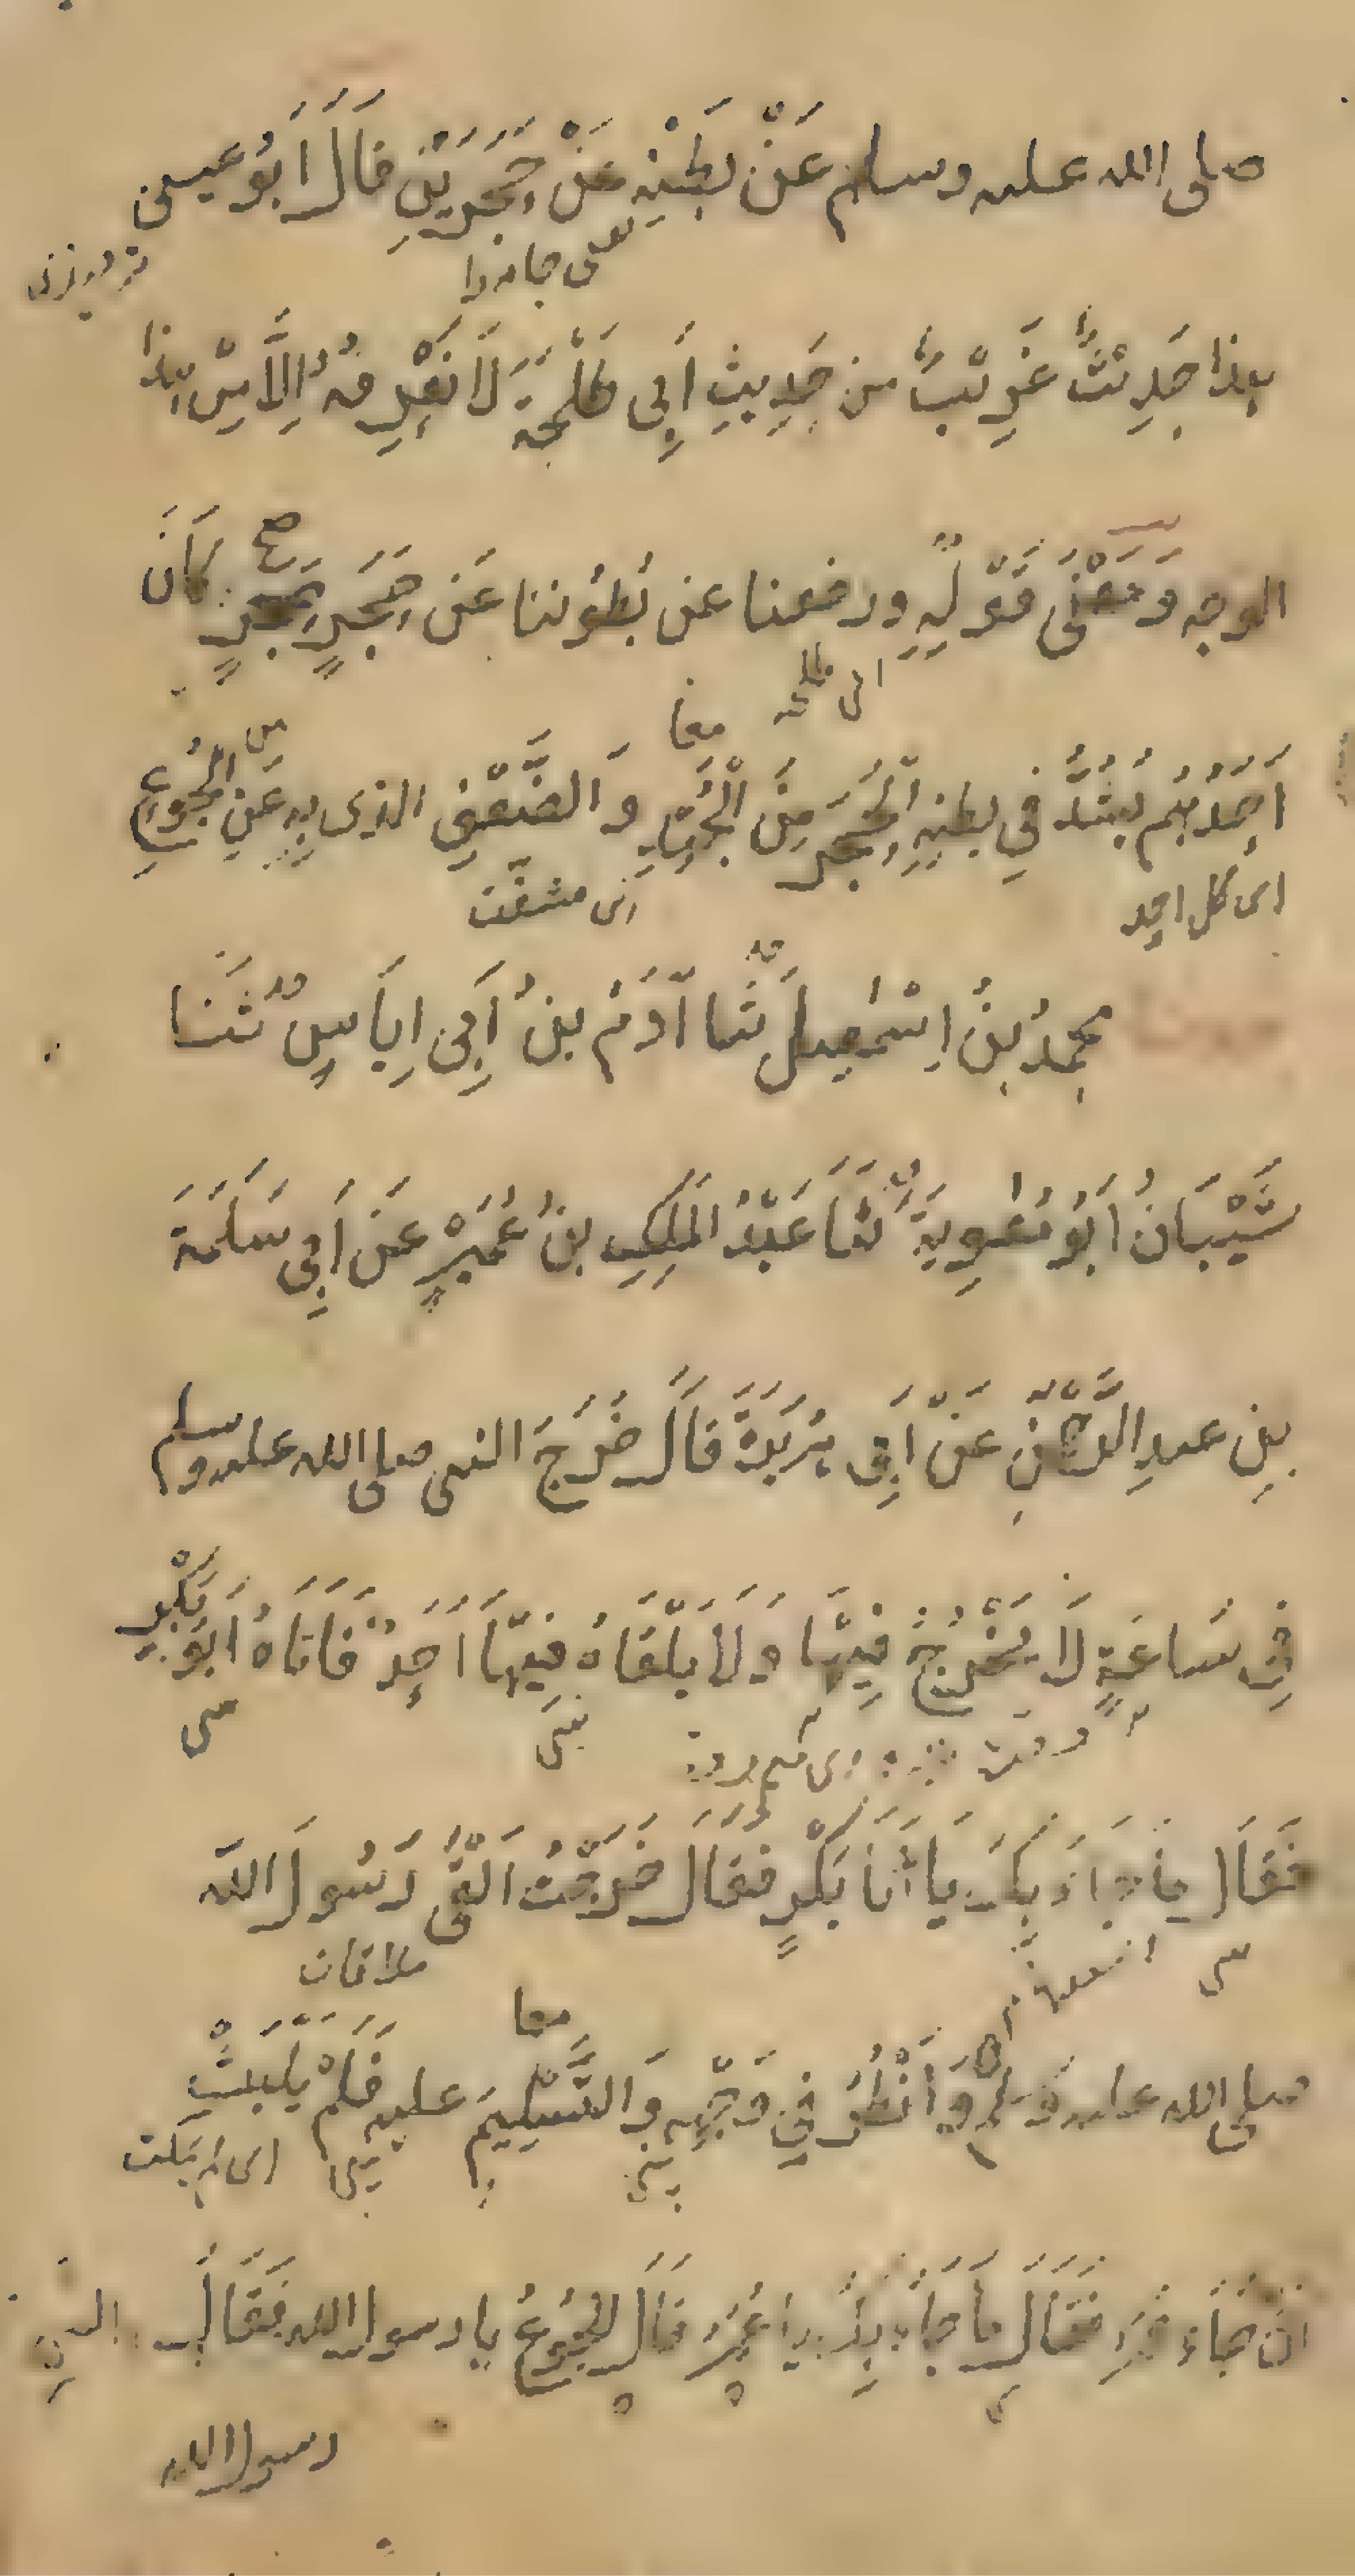 صلى الله عليه وسلم عَنْ بَطْنِهِ عَنْ حَجَرَيْنِ قَالَ اَبُو عيسى
هذا حَدِيْثٌ غَرِيْبٌ من حَدِيثِ أَبِى طَلْحَةَ لَا نَعْرِفُهُ اِلَّا مِنْ هذا
الوجه وَمَعْنَى قَوْلِهِ ورفعنا عن بُطُوننا عَن حَجَرٍ حَجَرٍ كَانَ
ابى طلحه معا
اَحَدُهُم يَشُدُّ فِي بطنِهِ الْحَجَرَ مِنَ الْجُهْدِ وَالضَّعْفِ الذى بِهِ مِن الجُوعِ
اى كل احد
اى مشقت
محمدُ بنُ اِسْمٰعِيلَ ثَنَا آدَمُ بنُ أَبِى اِيَاسٍ ثَنَا
شَيْبَانُ اَبُو مُعٰوِيَةَ ثَنَا عَبْدُ المَلِكِ بنُ عُمَيْرٍ عَن اَبِى سَلَمَةَ
بنِ عبدِ الرَّحْمٰنِ عَنْ اَبِى هُرَيرَةَ قَالَ خَرَجَ النبى صلى الله عليه وسلم
فِى سَاعَةٍ لَا يَخْرُجُ فِيْهَا وَلَا يَلْقَاهُ فِيْهَا اَحَدٌ فَاَتَاهُ اَبُو بَكْرٍ
فَقَالَ مَا جَاءَ بِكَ يَا أَبَا بَكْرٍ فَقَالَ خَرَجْتُ اَلْقَى رَسُولَ الله
ملاقات
معا
صلى الله عليه وسلم وَاَنْظُرُ فِي وَجْهِهِ وَالتَّسْلِيمَ عليه فَلَمْ يَلْبَثْ
اى لم يمكث
اَنْ جَاءَ عُمَرُ فَقَالَ مَا جَاءَ بِكَ يا عُمَرُ قَالَ الجُوعُ يا رسول الله فَقَالَ
رسول الله